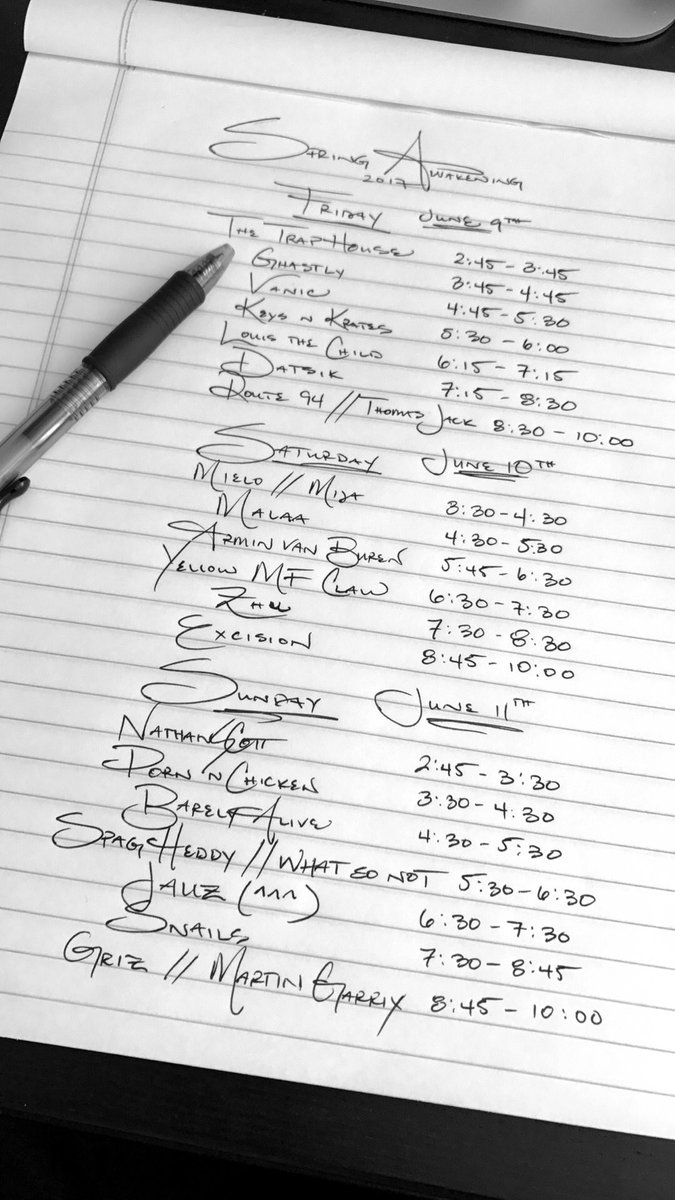 Spring Awakening
2017
Friday June 9th
The Trap House 2:45 - 3:45
Ghastly 3:45 - 4:45
Vanic 4:45 - 5:30
Keys N Krates 5:30 - 6:00
Louis the Child 6:15 - 7:15
Datsik 7:15 - 8:30
Route 94 // Thomas Jack 8:30 - 10:00
Saturday June 10th
Mielo // Mija 3:30 - 4:30
Malaa 4:30 - 5:30
Armin van Buren 5:45 - 6:30
Yellow MF Claw 6:30 - 7:30
Zhu 7:30 - 8:30
Excision 8:45 - 10:00
Sunday June 11th
Nathan Scott 2:45 - 3:30
Porn 'N Chicken 3:30 - 4:30
Barely Alive 4:30 - 5:30
Spag Heddy // What So Not 5:30 - 6:30
Jauz (^^^) 6:30 - 7:30
Snails 7:30 - 8:45
Griz // Martin Garrix 8:45 - 10:00